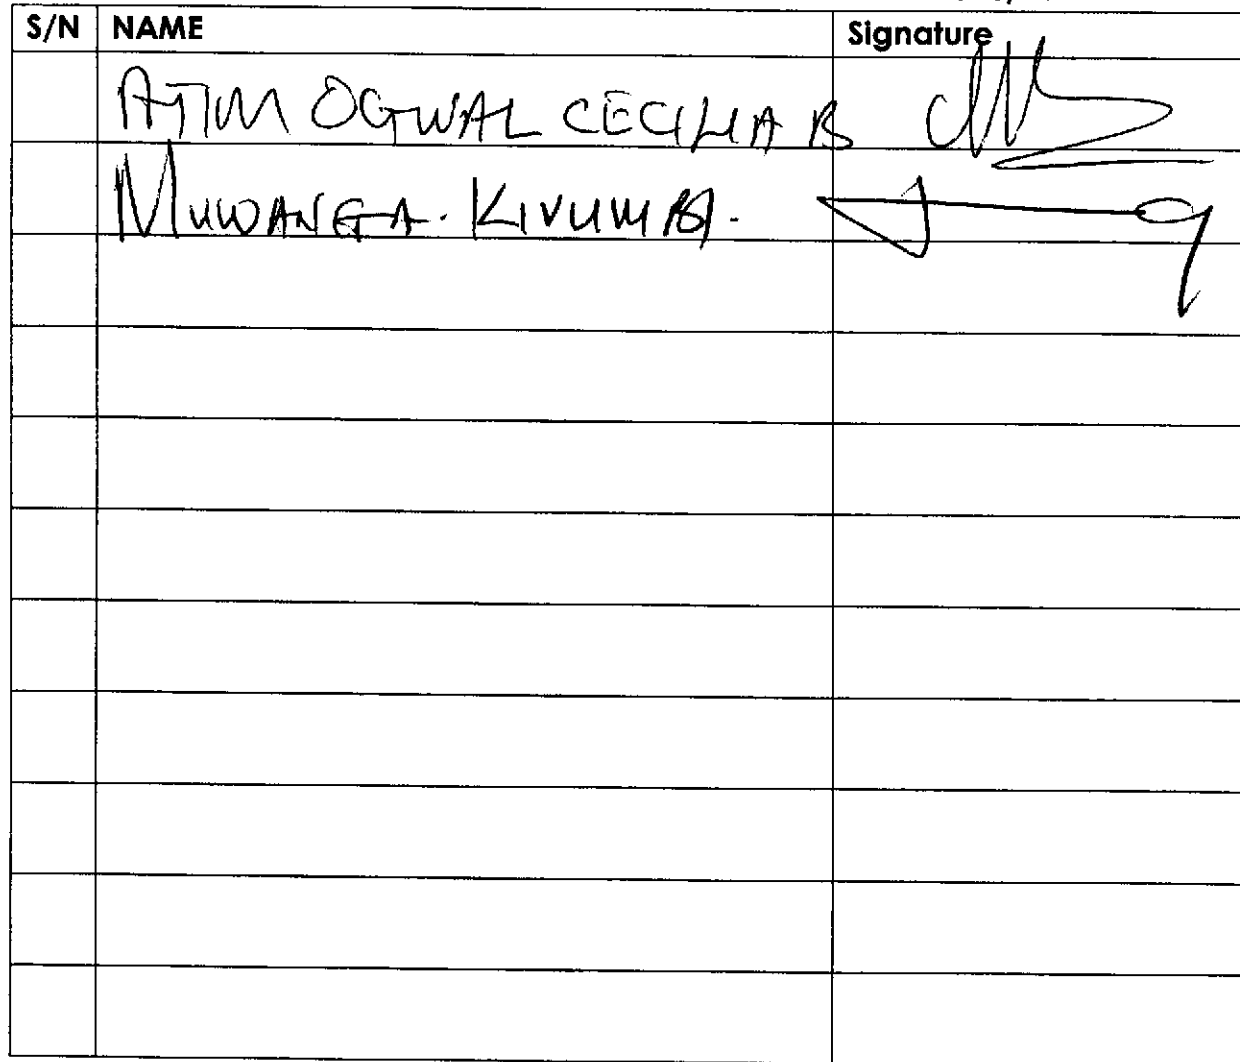 S/N NAME Signature
ATIM OGWAL CECILIA B
MUWANGA. KIVUMBI.